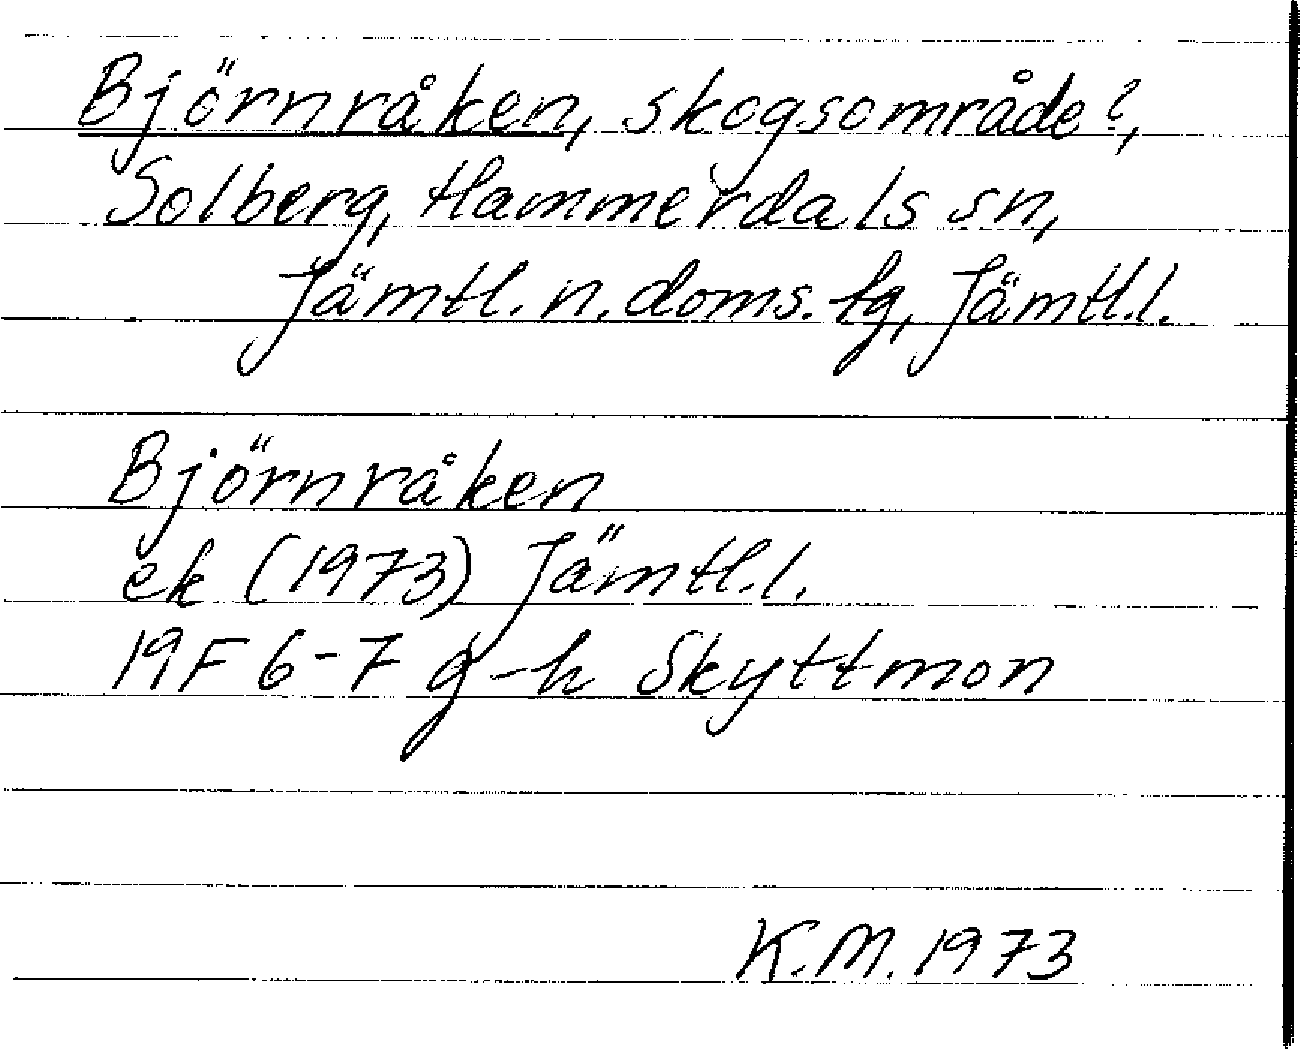 Björnråken, skogsområde?,
Solberg, Hammerdals sn,
Jämtl. n. doms. tg, Jämtl.l.
Björnråken
ek (1973) Jämtl.l.
19F 6-7 g-h Skyttmon
K.M. 1973